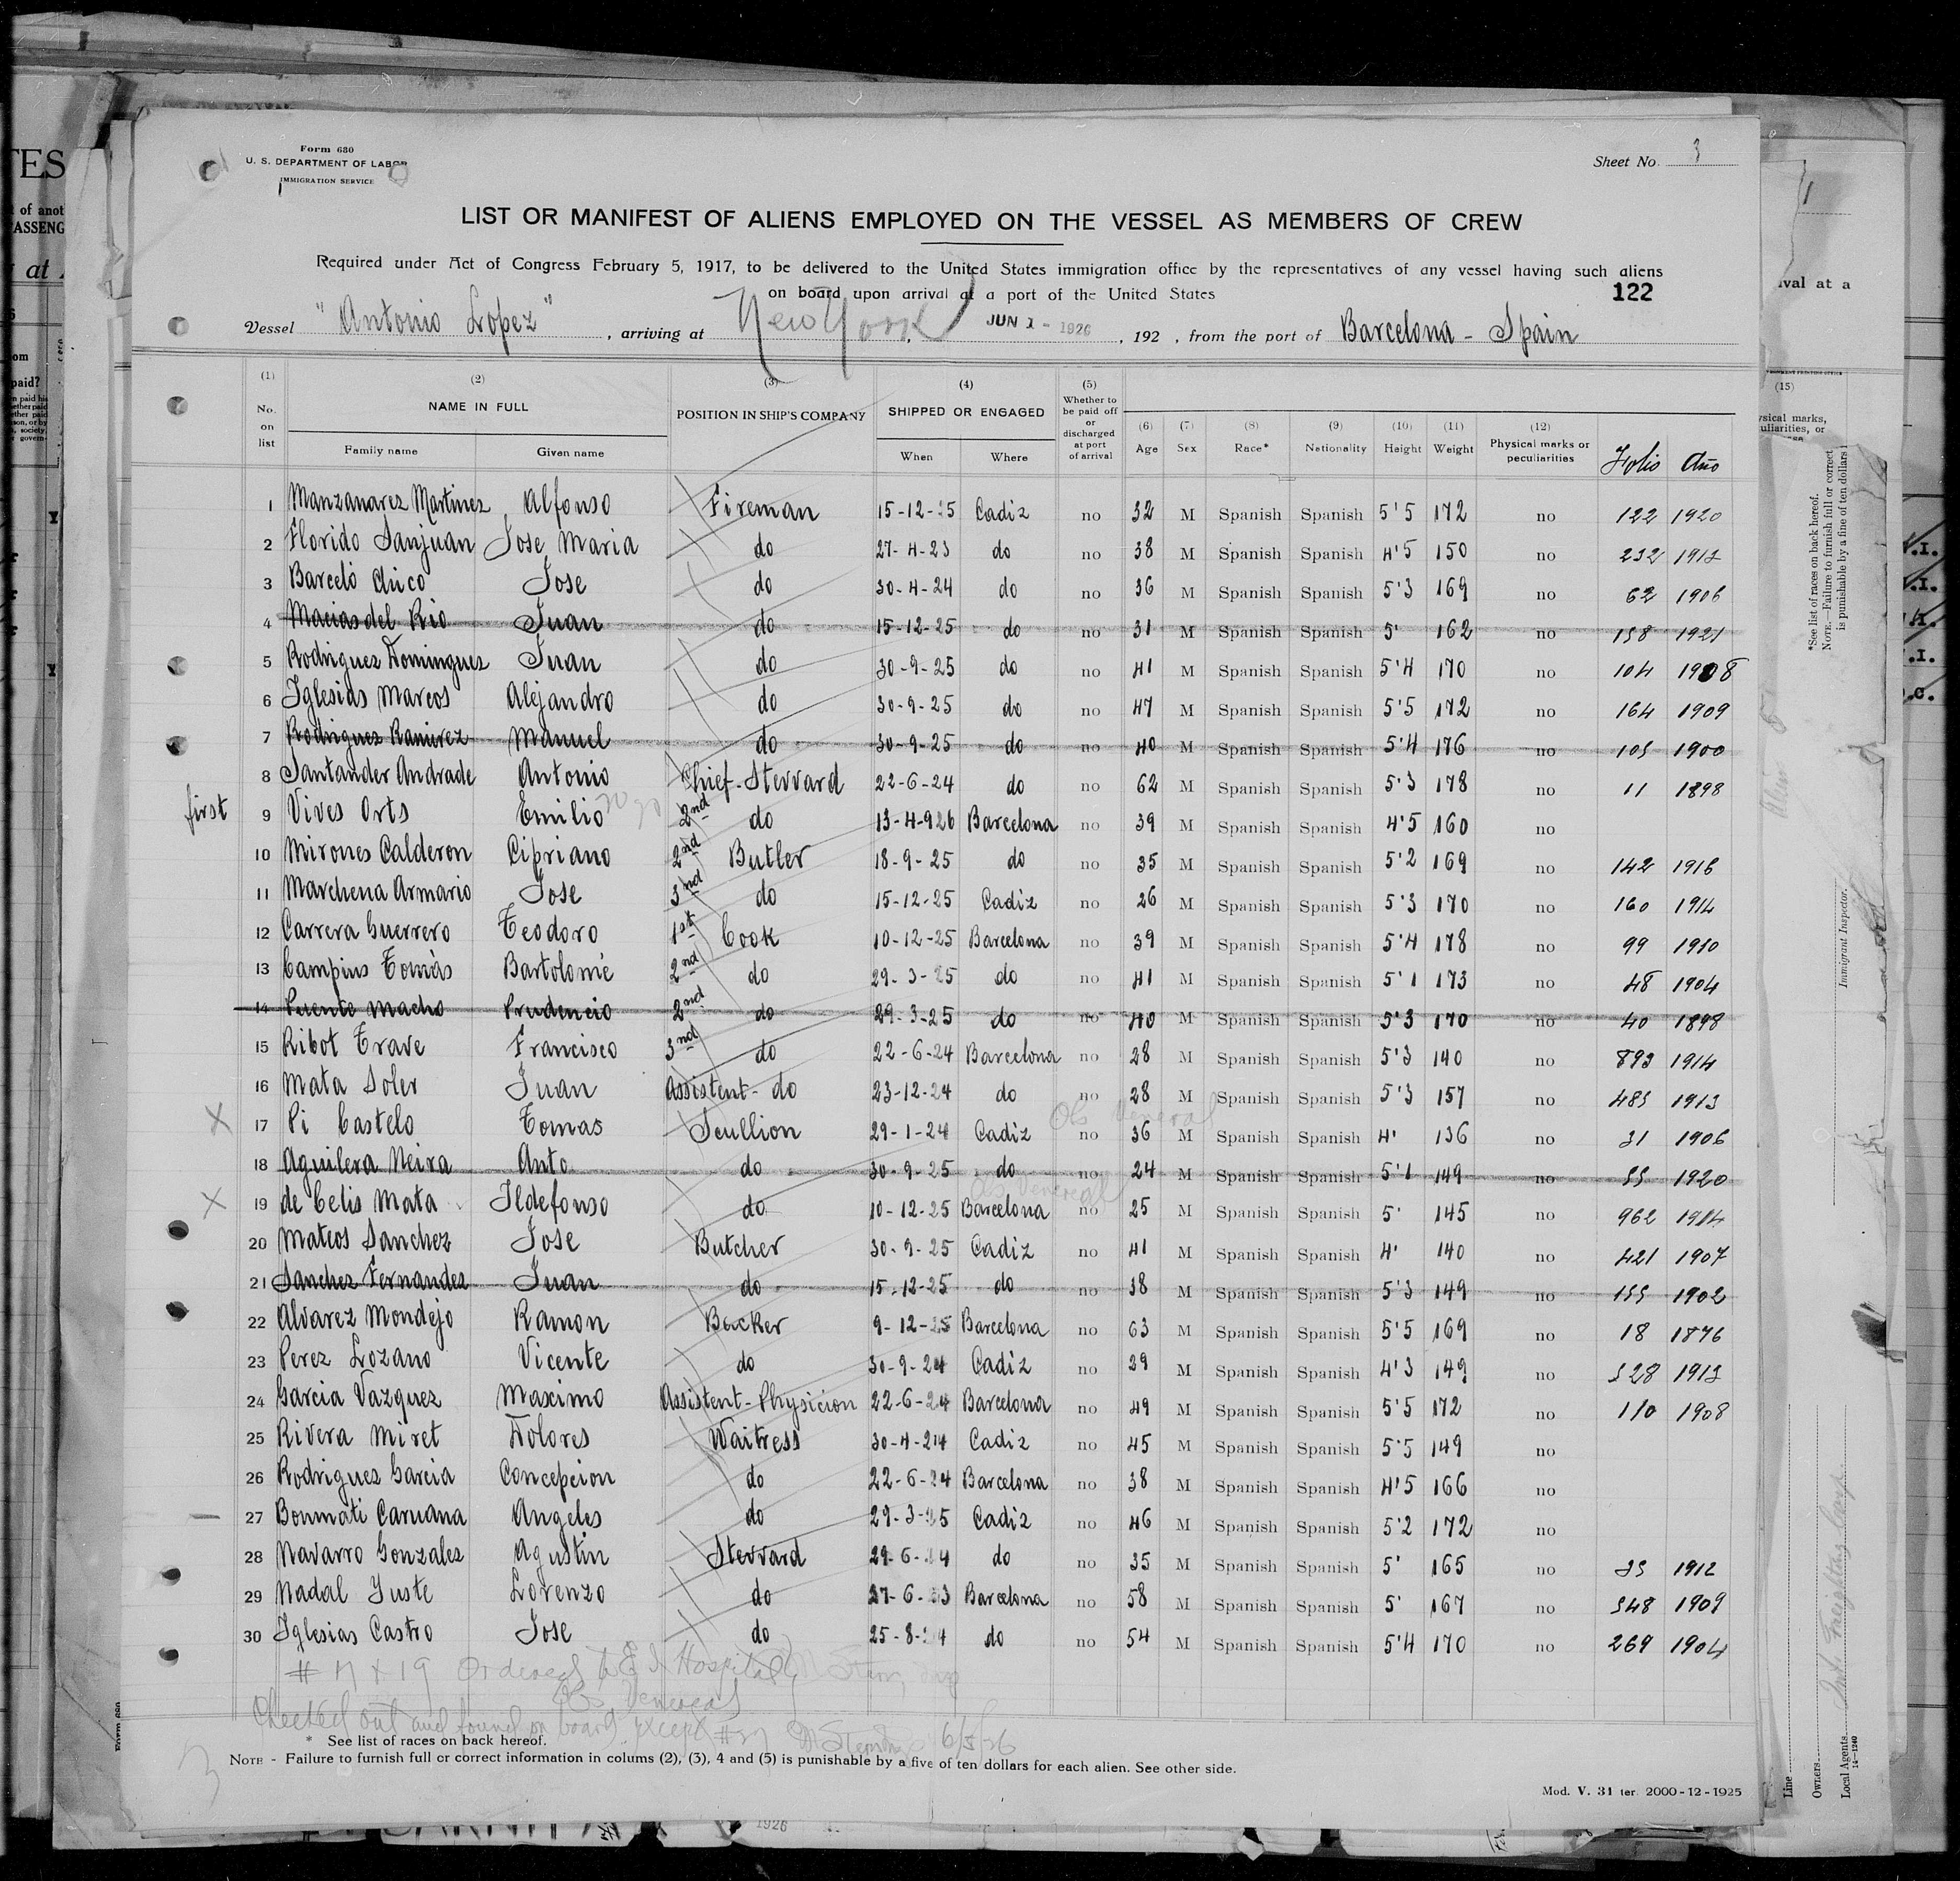 Form 680
U. S. DEPARTMENT OF LABOR
IMMIGRATION SERVICE
Sheet No. 3
LIST OR MANIFEST OF ALIENS EMPLOYED ON THE VESSEL AS MEMBERS OF CREW
Required under Act of Congress February 5, 1917, to be delivered to the United States immigration office by the representatives of any vessel having such aliens
on board upon arrival at a port of the United States
122
Vessel "Antonio Lopez", arriving at New York, JUN 1 - 1926, 192 , from the port of Barcelona - Spain
(1) No. on list (2) NAME IN FULL Family name Given name (3) POSITION IN SHIP'S COMPANY (4) SHIPPED OR ENGAGED When Where (5) Whether to be paid off or discharged at port of arrival (6) Age (7) Sex (8) Race* (9) Nationality (10) Height (11) Weight (12) Physical marks or peculiarities Folio Año
1 Manzanarez Martinez Alfonso Fireman 15-12-25 Cadiz no 32 M Spanish Spanish 5'5 172 no 122 1920
2 Florido Sanjuan Jose Maria do 27-4-23 do no 38 M Spanish Spanish 4'5 150 no 232 1913
3 Barceló Chico Jose do 30-4-24 do no 36 M Spanish Spanish 5'3 169 no 62 1906
4 Macias del Rio Juan do 15-12-25 do no 31 M Spanish Spanish 5' 162 no 158 1921
5 Rodriguez Dominguez Juan do 30-9-25 do no 41 M Spanish Spanish 5'4 170 no 104 1908
6 Iglesias Marcos Alejandro do 30-9-25 do no 47 M Spanish Spanish 5'5 172 no 164 1909
7 Rodriguez Ramirez Manuel do 30-9-25 do no 40 M Spanish Spanish 5'4 176 no 105 1900
8 Santander Andrade Antonio Chief-Stevvard 22-6-24 do no 62 M Spanish Spanish 5'3 178 no 11 1898
first 9 Vives Orts Emilio 2nd do 13-4-926 Barcelona no 39 M Spanish Spanish 4'5 160 no
10 Mirones Calderon Cipriano 2nd Butler 18-9-25 do no 35 M Spanish Spanish 5'2 169 no 142 1916
11 Marchena Armario Jose 3nd do 15-12-25 Cadiz no 26 M Spanish Spanish 5'3 170 no 160 1914
12 Carrera Guerrero Teodoro 1st Cook 10-12-25 Barcelona no 39 M Spanish Spanish 5'4 178 no 99 1910
13 Campins Tomàs Bartolomé 2nd do 29-3-25 do no 41 M Spanish Spanish 5'1 173 no 48 1904
14 Puente Macho Prudencio 2nd do 29-3-25 do no 40 M Spanish Spanish 5'3 170 no 40 1898
15 Ribot Trave Francisco 3nd do 22-6-24 Barcelona no 28 M Spanish Spanish 5'3 140 no 893 1914
16 Mata Soler Juan Assistent-do 23-12-24 do no 28 M Spanish Spanish 5'3 157 no 485 1913
X 17 Pi Castelo Tomas Scullion 29-1-24 Cadiz no 36 M Spanish Spanish 4' 136 no 31 1906
Obs Veneral
18 Aguilera Neira Anto do 30-9-25 do no 24 M Spanish Spanish 5'1 149 no 55 1920
Obs Venereal
X 19 de Celis Mata Ildefonso do 10-12-25 Barcelona no 25 M Spanish Spanish 5' 145 no 962 1914
20 Mateos Sanchez Jose Butcher 30-9-25 Cadiz no 41 M Spanish Spanish 4' 140 no 421 1907
21 Sanchez Fernandez Juan do 15-12-25 do no 38 M Spanish Spanish 5'3 149 no 155 1902
22 Alvarez Mondejo Ramon Backer 9-12-25 Barcelona no 63 M Spanish Spanish 5'5 169 no 18 1876
23 Perez Lozano Vicente do 30-9-24 Cadiz no 29 M Spanish Spanish 4'3 149 no 528 1913
24 Garcia Vazquez Maximo Assistent-Physicion 22-6-24 Barcelona no 49 M Spanish Spanish 5'5 172 no 110 1908
25 Rivera Miret Dolores Waitress 30-4-24 Cadiz no 45 M Spanish Spanish 5'5 149 no
26 Rodriguez Garcia Concepcion do 22-6-24 Barcelona no 38 M Spanish Spanish 4'5 166 no
27 Bonmati Caruana Angeles do 29-3-25 Cadiz no 46 M Spanish Spanish 5'2 172 no
28 Navarro Gonzalez Agustin Stevvard 29-6-24 do no 35 M Spanish Spanish 5' 165 no 35 1912
29 Nadal Yuste Lorenzo do 27-6-23 Barcelona no 58 M Spanish Spanish 5' 167 no 348 1909
30 Iglesias Castro Jose do 25-8-24 do no 54 M Spanish Spanish 5'4 170 no 269 1904
# 17 & 19 Ordered to E I Hospital
Obs Venereal
Checked out and found on board except #27 6/5/26
* See list of races on back hereof.
NOTE - Failure to furnish full or correct information in colums (2), (3), 4 and (5) is punishable by a five of ten dollars for each alien. See other side.
Mod. V. 31 ter. 2000-12-1925
(15)
*See list of races on back hereof.
NOTE.—Failure to furnish full or correct
is punishable by a fine of ten dollars
Immigrant Inspector.
Line
Owners
Local Agents
14-1240
1926